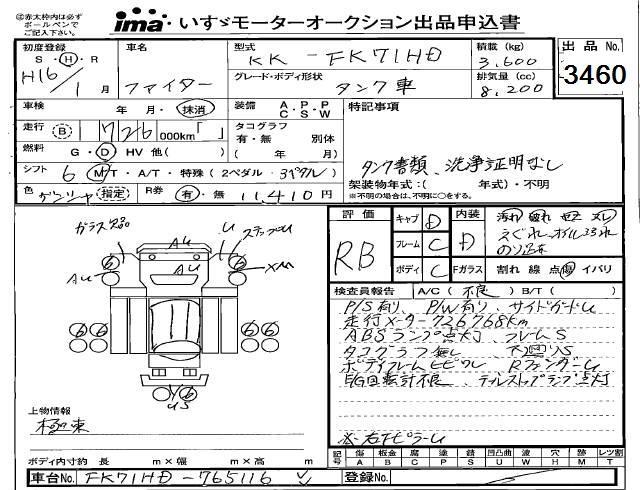 ◎赤太枠内は必ず
ボールペンで
ご記入下さい。
ima いすゞモーターオークション出品申込書
初度登録
S・H・R
H16/1月
車名
ファイター
型式
KK-FK71HD
グレード・ボディ形状
タンク車
積載(kg)
3,600
排気量(cc)
8,200
出品No.
3460
車検 年・月・抹消
装備 A.P.P C S W
特記事項
走行 B 726,000km「 」
タコグラフ
有・無 別体
( 年 月)
燃料 G・D HV 他( )
シフト 6 MT・A/T・特殊(2ペダル・3ペダル)
色 (指定) R券 有・無 11,410円
タンク書類、洗浄証明なし
架装物年式:( 年式)・不明
※不明の場合は、不明に○をする。
評価
RB
キャブ D
フレーム C
ボディ C
内装 D
汚れ 破れ
Fガラス 割れ 線 点傷 イバリ
ガラス
U
ステップ
AU
AU
AU
検査員報告 A/C(不良)B/T( )
P/S有り、P/W有り、サイドガードU
走行メーター726768km
ABSランプ点灯、フレームS
タコグラフ無し、下廻りS
E/G回転計不良、テールストップランプ点灯
※右FピラーU
上物情報
極東
ボディ内寸約 長 m×幅 m×高 m
記号 傷A 板金B 腐C 塗P 錆S 凹凸曲U 波W 穴H 跡M レツ割T
車台No. FK71HD-765116
登録No.